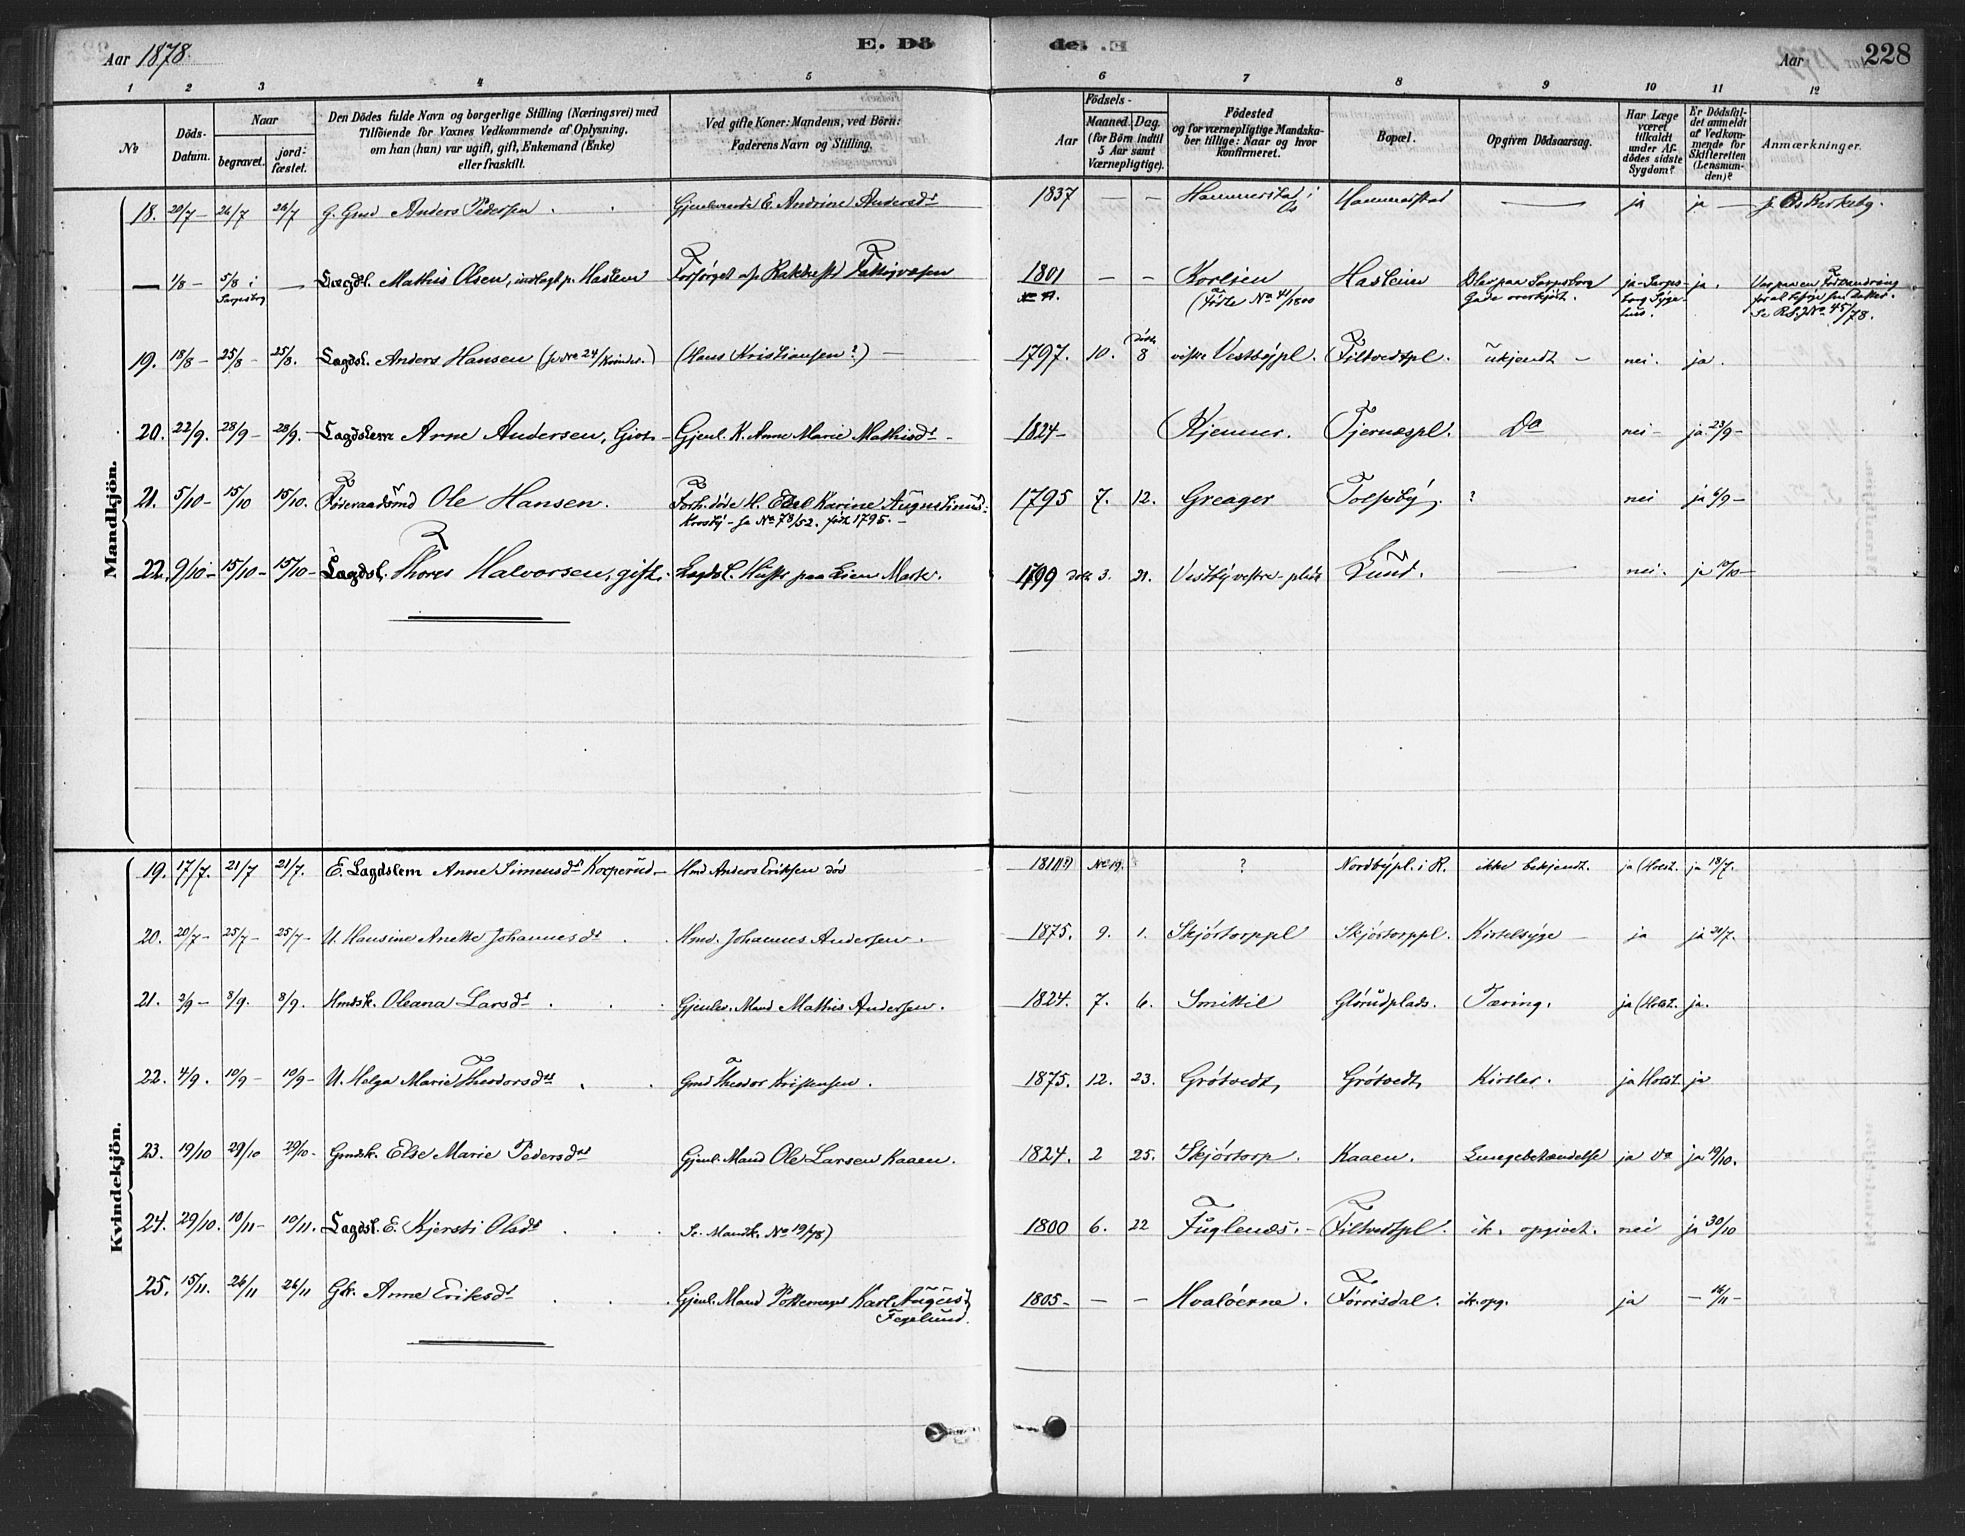 Aar 1878.
E. Dö
de. E
Aar
228
1 2 3 4 5 6 7 8 9 10 11 12
No
Döds-Datum.
Naar
begravet.
jordfæstet.
Den Dödes fulde Navn og borgerlige Stilling (Næringsvei) med
Tilföiende for Voxnes Vedkommende af Oplysning,
om han (hun) var ugift, gift, Enkemand (Enke)
eller fraskilt.
Ved gifte Koner: Mandens, ved Börn:
Faderens Navn og Stilling.
Födsels-
Aar
Maaned. Dag.
(for Börn indtil
5 Aar samt
Værnepligtige).
Födested
og for værnepligtige Mandska-
ber tillige: Naar og hvor
konfirmeret.
Bopæl.
Opgiven Dödsaarsag.
Har Læge
været
tilkaldt
under Af-
dödes sidste
Sygdom?
Er Dödsfal-
det anmeldt
af Vedkom-
mende for
Skifteretten
(Lensman-
den)?
Anmærkninger.
Mandkjön.
18. 20/7 – 26/7 26/7 G. Gmd Anders Pedersen Gjenlevende E. Andrine Andersdr 1837 — — Hammerstad i Hammerstad — ja ja —
— 1/8 – 5/8 i Sarpsborg — Lægdsl. Mathis Olsen, indlagt p. Haslem Forsørget af Rakkestd Fattigvæsen 1801 — — (Fødte No 41/1800 Haslem Blev paa Sarpsborg Gade overkjørt. ja – Sarpsborg Sygehus. ja. Se No 45/78.
19. 18/8 – 25/8 – 25/8. Lægdsl. Anders Hansen (se No 24/Kvinder.) (Hans Kristiansen?) — 1797. 10. døbt 8 vestre Vestbypl. Filtvedtpl. ukjendt – nei. ja.
20. 22/9. 28/9 – 28/9. Lægdslem Arne Andersen, Gift – Gjenl. K. Anne Marie Mathisdr – 1824 – Kjenner. Tjernæspl. Do nei – ja 23/9 –
21. 5/10 – 15/10 15/10. Føderaadsmd Ole Hansen. Forh. døde H. Edel Karine Augustinusd: Kroshy – se No 73/52. født 1795. – 1795 7. 12. Greager Tolfsby ? nei ja 6/9 –
22. 9/10 – 15/10 – 15/10 – Lægdsl. Thores Halvorsen, gift. Lægdsl. Huste paa Lien Mark. 1799 døbt 3. 21. Vestby vestre – plads Lund. — nei. ja 10/10 –
Kvindekjön.
19. 17/7. 21/7 21/7. E. Lægdslem Anne Simensdr Korperud – Hmd Anders Eriksen død 1811(?) No 19. ? Nordbypl. i R. ikke bekjendt. ja (Holst. ja 18/7.
20. 20/7 – 25/7 – 25/7 – U. Hansine Anette Johannesdr Hmd. Johannes Andersen. 1875. 9. 1. Skjørtorppl Skjørtorppl. Kirtelsyge – ja ja 21/7.
21. 2/9 – 8/9. 8/9. Hmdsk. Oleana Larsdr Gjenlev. Mand Mathis Andersen. 1824. 7. 6. Smittil Glørudplads. Tæring. ja (Holst. ja.
22. 4/9. 10/9 – 10/9 – U. Helga Marie Theodorsdtr Gmd Theodor Kristensen. 1875. 12. 23. Grøtvedt, Grøtvedt, Kirtler. ja Holst. ja
23. 19/10 29/10 29/10 – Gmdsk. Else Marie Pedersdtr Gjenl. Mand Ole Larsen Kaaen. 1824. 2 25. Skjørtorp. Kaaen. Lungebetændelse ja Do ja 19/10.
24. 29/10. 10/11 – 10/11. Lægdsl. E. Kjersti Olsdr Se. Mandk. No 19/78) 1800 6. 22 Fuglenes. – Filtvedtpl. ik. opgivet. nei ja 30/10
25. 15/11. 26/11 26/11 Gk. Anne Eriksdr Gjenl. Mand Pottemager Karl August Fegelund. 1805 – — — Hvaløerne. Førrisdal. ik. opg. ja – 16/11 –